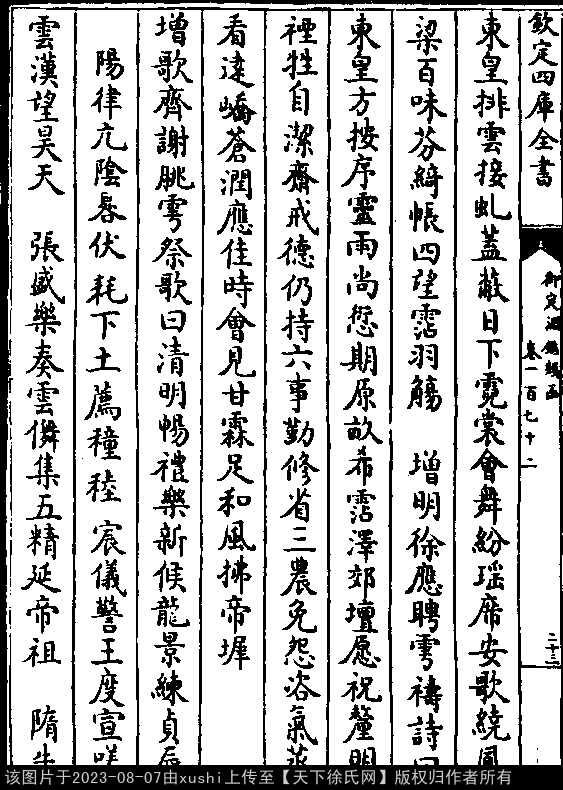 欽定四庫全書
御定淵鑑類函
卷一百七十二
二十三
東皇排雲接虬蓋蔽日下霓裳會舞紛瑶席安歌繞鳳
梁百味芬綺帳四望霑羽觴 增明徐應聘雩禱詩曰
東皇方按序靈雨尚愆期原畝希霑澤郊壇愿祝釐明
禋牲自潔齋戒德仍持六事勤修省三農免怨咨氣蒸
看遠嶠蒼潤應佳時會見甘霖足和風拂帝墀
增歌齊謝朓雩祭歌曰清明暢禮樂新候龍景練貞辰
陽律亢陰晷伏耗下土薦穜稑宸儀警王度宣嗟
雲漢望昊天 張盛樂奏雲儛集五精延帝祖 隋牛
该图片于2023-08-07由xushi上传至【天下徐氏网】版权归作者所有